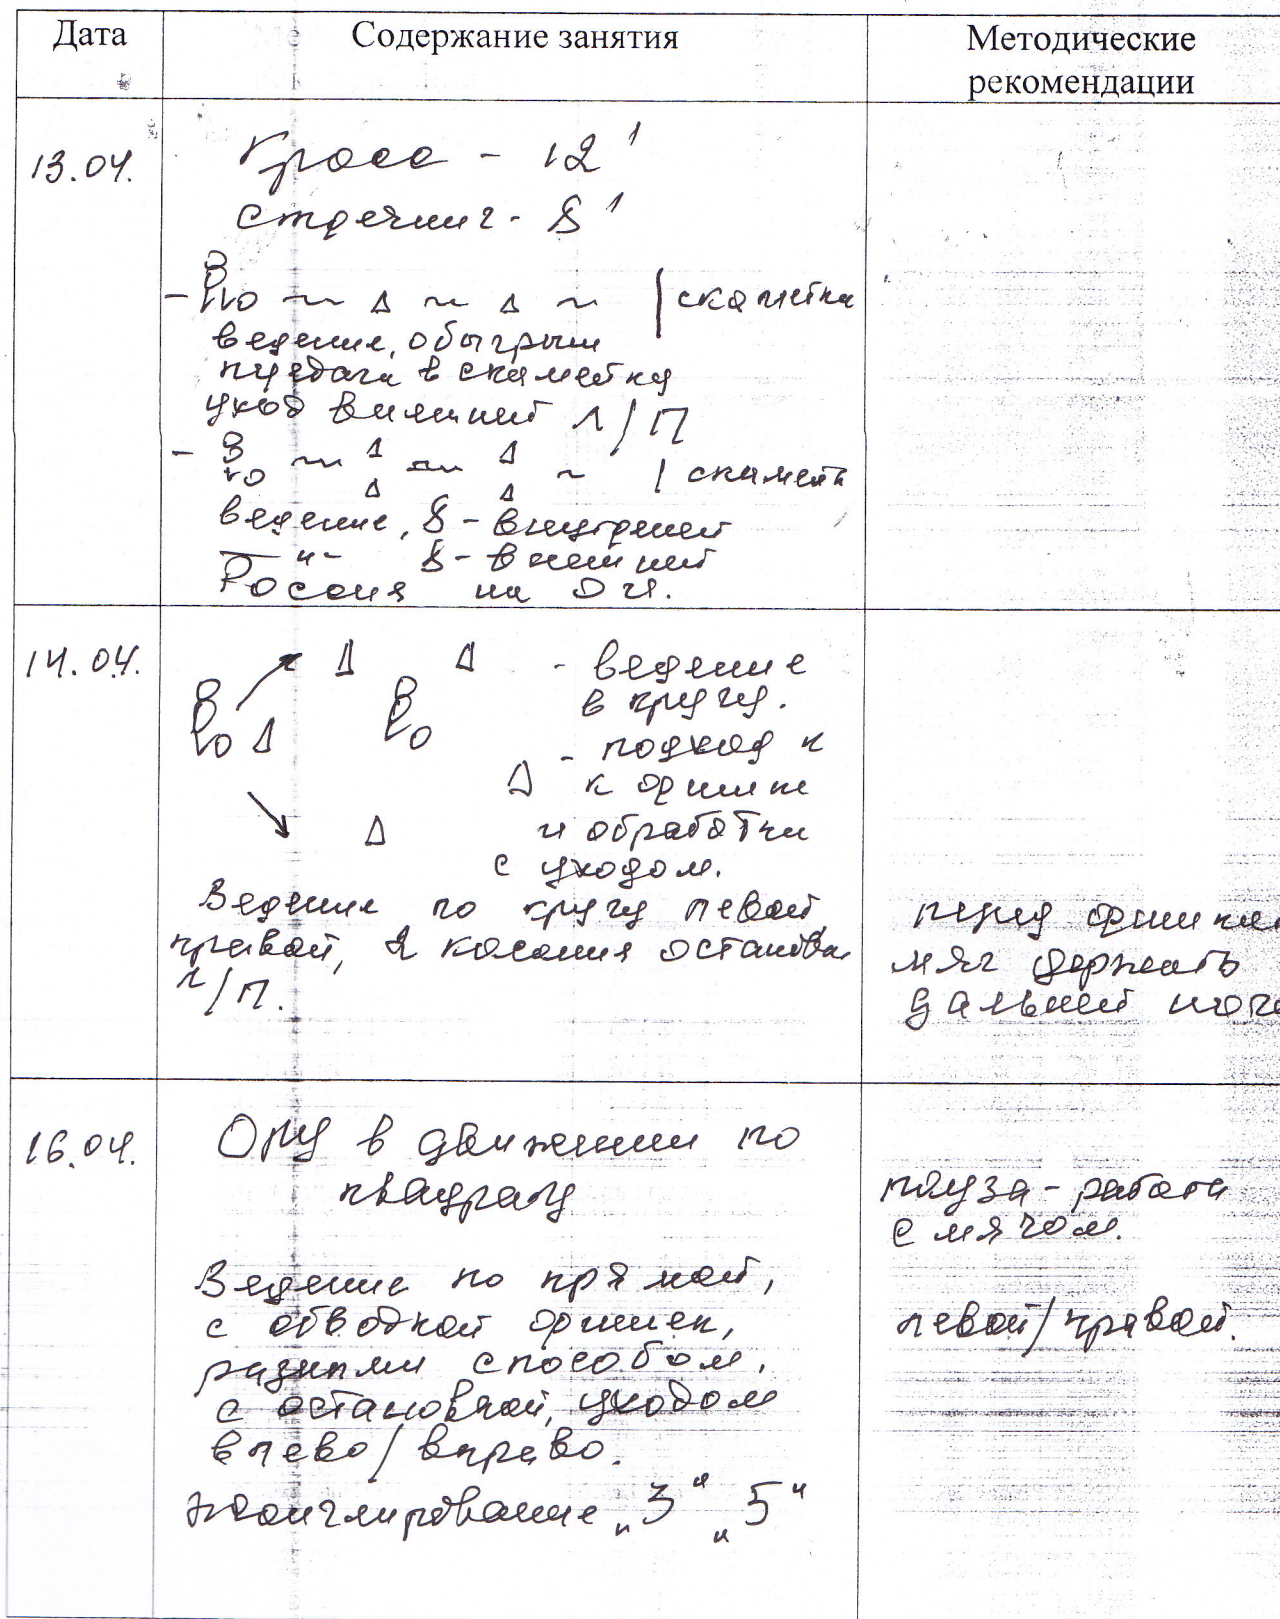 Дата Содержание занятия Методические
рекомендации
13.04.
Кросс - 12'
стречинг - 8'
скамейка
ведение, обыгрыш
передача в скамейку
уход внешней Л/П
скамейка
ведение, 8 - внутренней
—"— 8 - внешней
на
14.04.
- ведение
в кругу.
- подход к
к фишке
и обработки
с уходом.
Ведение по кругу левой
правой, 2 касания остановка
Л/П.
перед фишкой
мяч держать
дальней ноги
16.04.
ОРУ в движении по
квадрату
пауза - работа
с мячом.
Ведение по прямой,
с обводкой фишек,
разным способом,
с остановкой, уходом
влево/вправо.
левой/правой.
жонглирование „3" „5"